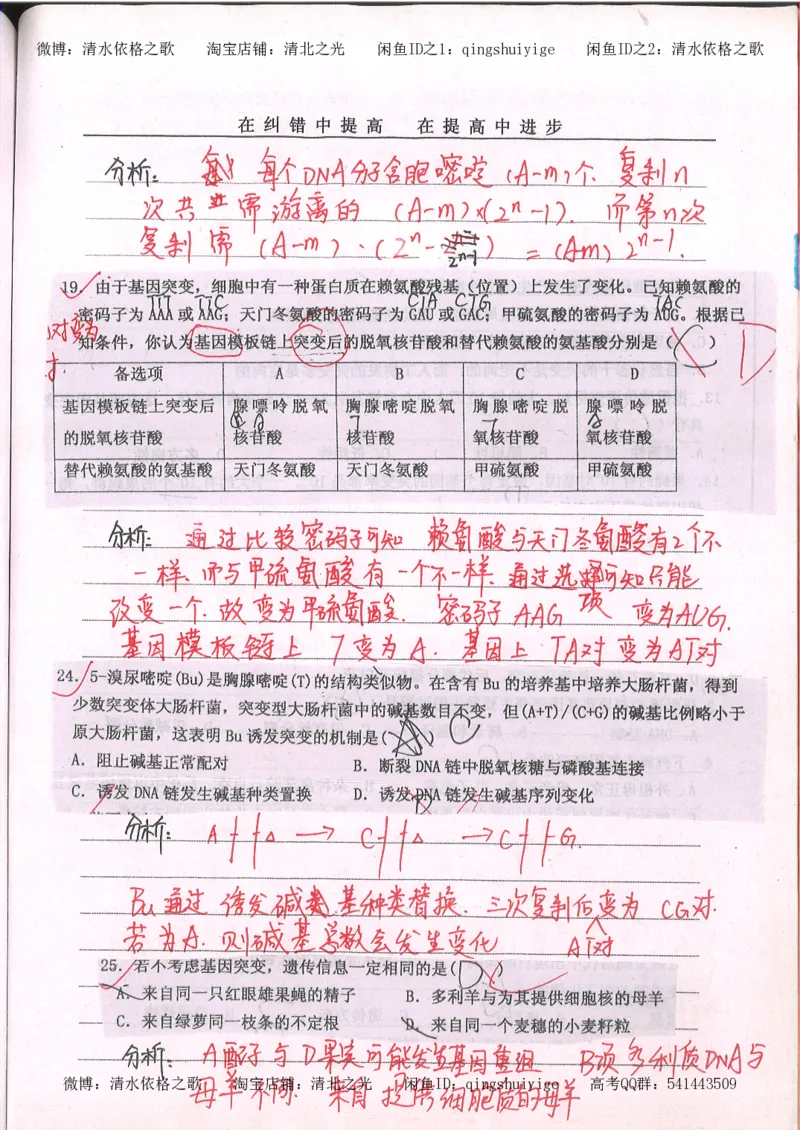 微博：清水依格之歌 淘宝店铺：清北之光 闲鱼ID之1：qingshuiyige 闲鱼ID之2：清水依格之歌
在纠错中提高 在提高中进步
分析： 每个DNA分子含胞嘧啶 (A-m)个. 复制n
次共需游离的 (A-m)×(2ⁿ-1). 而第n次
复制需 (A-m)·(2ⁿ-2ⁿ⁻¹) = (Am) 2ⁿ⁻¹.
19．由于基因突变，细胞中有一种蛋白质在赖氨酸残基（位置）上发生了变化。已知赖氨酸的
TTT TTC CTA CTG TAC
密码子为 AAA 或 AAG；天门冬氨酸的密码子为 GAU 或 GAC；甲硫氨酸的密码子为 AUG。根据已
知条件，你认为基因模板链上突变后的脱氧核苷酸和替代赖氨酸的氨基酸分别是（C） D
备选项 A B C D
基因模板链上突变后 腺嘌呤脱氧 胸腺嘧啶脱氧 胸腺嘧啶脱 腺嘌呤脱
的脱氧核苷酸 核苷酸 核苷酸 氧核苷酸 氧核苷酸
替代赖氨酸的氨基酸 天门冬氨酸 天门冬氨酸 甲硫氨酸 甲硫氨酸
分析： 通过比较密码子可知 赖氨酸与天门冬氨酸有2个不
一样. 而与甲硫氨酸有一个不一样. 通过选项可知只能
改变一个. 故变为甲硫氨酸. 密码子AAG 变为AUG.
基因模板链上 T变为A. 基因上 TA对变为AT对
24．5-溴尿嘧啶(Bu)是胸腺嘧啶(T)的结构类似物。在含有 Bu 的培养基中培养大肠杆菌，得到
少数突变体大肠杆菌，突变型大肠杆菌中的碱基数目不变，但(A+T)/(C+G)的碱基比例略小于
原大肠杆菌，这表明 Bu 诱发突变的机制是( A ) C
A．阻止碱基正常配对 B．断裂 DNA 链中脱氧核糖与磷酸基连接
C．诱发 DNA 链发生碱基种类置换 D．诱发 DNA 链发生碱基序列变化
分析： A C C G.
Bu通过诱发碱基种类替换. 三次复制后变为 CG对.
若为A. 则碱基总数会发生变化 AT对
25．若不考虑基因突变，遗传信息一定相同的是( D )
A．来自同一只红眼雄果蝇的精子 B．多利羊与为其提供细胞核的母羊
C．来自绿萝同一枝条的不定根 D．来自同一个麦穗的小麦籽粒
分析： A配子与D果实可能发生基因重组 B项多利质DNA与
母羊不同. 来自提供细胞质的母羊
微博：清水依格之歌 淘宝店铺：清北之光 闲鱼ID：qingshuiyige 高考QQ群：541443509